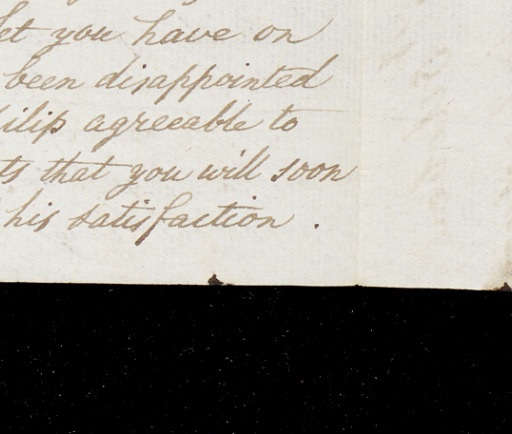 let you have on
been disappointed
agreeable to
that you will soon
his satisfaction .